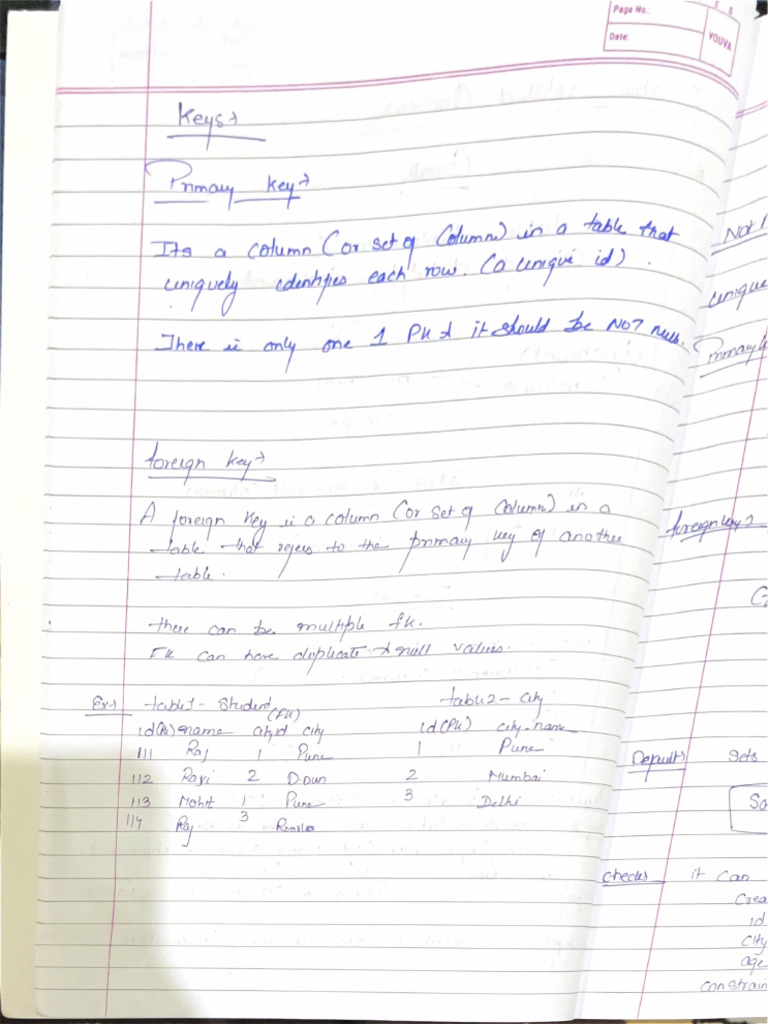 Page No.
Date:
YOUVA
Keys→
Primary Key→
Its a column (or set of Columns) in a table that
uniquely identifies each row. (a unique id).
There is only one 1 PK & it should be NOT null.
foreign key→
A foreign key is a column (or set of column) in a
table that refers to the primary key of another
table.
there can be multiple fk.
FK can have duplicate & null values.
Ex→ table1 - Student table2 - city
(FK)
id(PK) name city_id city id(PK) city_name
111 Raj 1 Pune 1 Pune
112 Ravi 2 D.Dun 2 Mumbai
113 Mohit 1 Pune 3 Delhi
114 Raj 3
Not
unique
Primary
foreign key→
Default) Sets
checks it can
Crea
id
City
age
constrain